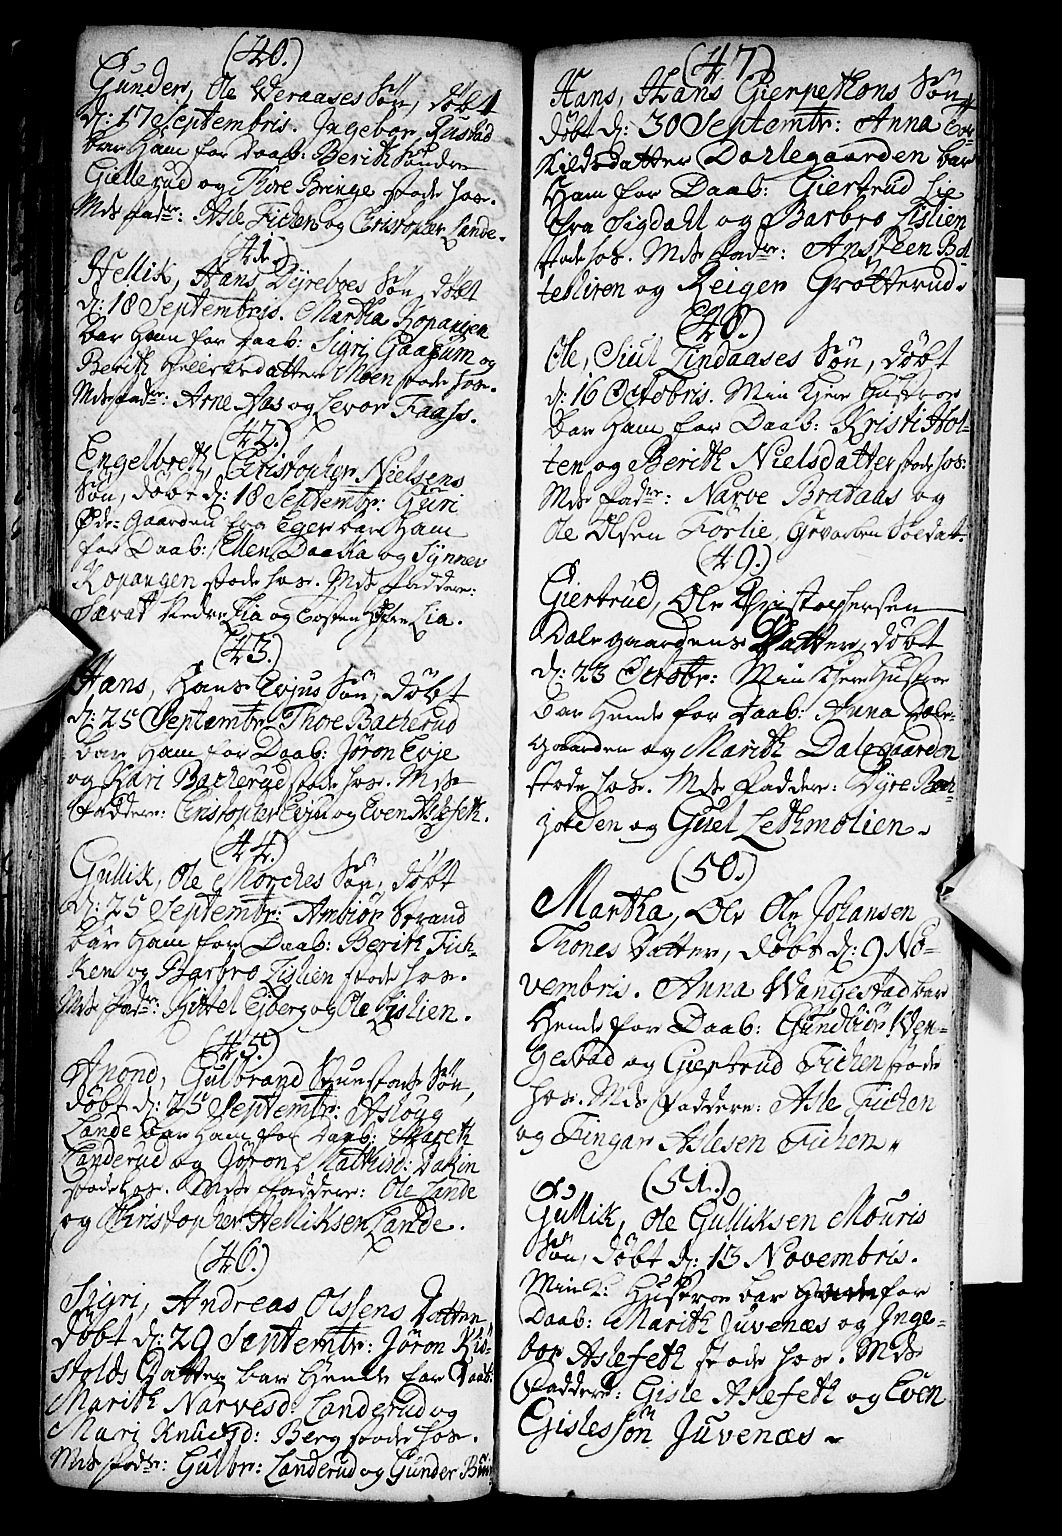 (40.)
Gunder, Ole Weraases Søn, døbt
d: 17 Septembris. Ingebor Rustad
bar Ham for Daab: Berith Sundre
Gillerud og Thore Bringe stode hos.
Mds fadr: Asle Fichen og Christopher Lande.
(41.)
Hellik, Hans Dyreboes Søn, døbt
d: 18 Septembris. Martha Kopangen
bar Ham for Daab: Sigri Gaasum og
Berith Helleksdatter Moen stode hos.
Mds fadr: Arne Aas og Levor Faass.
(42.)
Engelbreth, Christopher Nielsens
Søn, døbt d: 18 Septembr: Guri
Øde-Gaarden fra Eger bar Ham
for Daab: Ellen Daaka og Synnev
Kopangen stode hos. Mds faddere:
Tarat Lia og Tosten Lia.
(43.)
Hans, Hans Evjus Søn, døbt
d: 25 Septembr: Thore Bacherud
bar Ham for Daab: Jøron Evje
og Kari Bacherud stode hos. Mds
Faddere: Christopher Evju og Even Aslefeth.
(44.)
Gullik, Ole Morches Søn, døbt
d: 25 Septembr: Ambiør Strand
bar Ham for Daab: Berith Fich-
ken og Barbro Lislien stode hos.
Mds fadr: Kittel Eiberg og Ole Lislien.
(45.)
Anond, Gulbrand Skunstads Søn,
døbt d: 25 Septembr: Asloug
Lande bar Ham for Daab: Mareth
Landerud og Jøron Mathisd: Dokin
stode hos. Mds faddere: Ole Lande
og Christopher Helliksen Lande.
(46.)
Sigri, Andreas Olssens Datter
døbt d: 29 Septembr: Jøron Kid-
stolds Datter bar Hende for Daab:
Marith Narvesd: Landerud og
Mari Knudsd: Berg stode hos.
Mds fadr: Gulbr: Landerud og Gunder
(47.)
Hans, Hans Gierpethons Søn
døbt d: 30 Septembr: Anna Tor-
kildsdatter Dalegaarden bar
Ham for Daab: Giertrud Lie
fra Sigdall og Barbro Lislien
stode hos. Mds fadr: Ansteen Bol
tehliren og Reiger Grøtterud.
(48.)
Ole, Siul Lindaases Søn, døbt
d: 16 Octobris. Min Kiere Hustroe
bar Ham for Daab: Kristi Hol-
ten og Berith Nielsdatter stode hos:
Mds fadr: Narve Brataas og
Ole Olsen Forlie, Soldat.
(49.)
Giertrud, Ole Christophersen
Dalegaardens Datter, døbt
d: 23 Octobr: Min Kiere Hustroe
bar Hende for Daab: Anna Dale-
gaarden og Marith Dalegaarden
stode hos. Mds faddere: Gyre Bech-
jorden og Gisel Lethmolien.
(50.)
Martha, Ole Ole Johansen
Thones Datter, døbt d: 9 No-
vembris. Anna Wangestad bar
Hende for Daab: Gundbiør Wen-
gestad og Giertrud Fichen stode
hos. Mds Faddere: Asle Fichen
og Fingar Aslesen Fichen.
(51.)
Gullik, Ole Gulliksen Mouris
Søn, døbt d: 13 Novembris.
Min K: Hustroe bar Hende for
Daab: Marith Juvenæs og Inge-
bor Aslefeth stode hos. Mds
Faddere: Gisle Aslefeth og Even
Gislessøn Juvenæs.